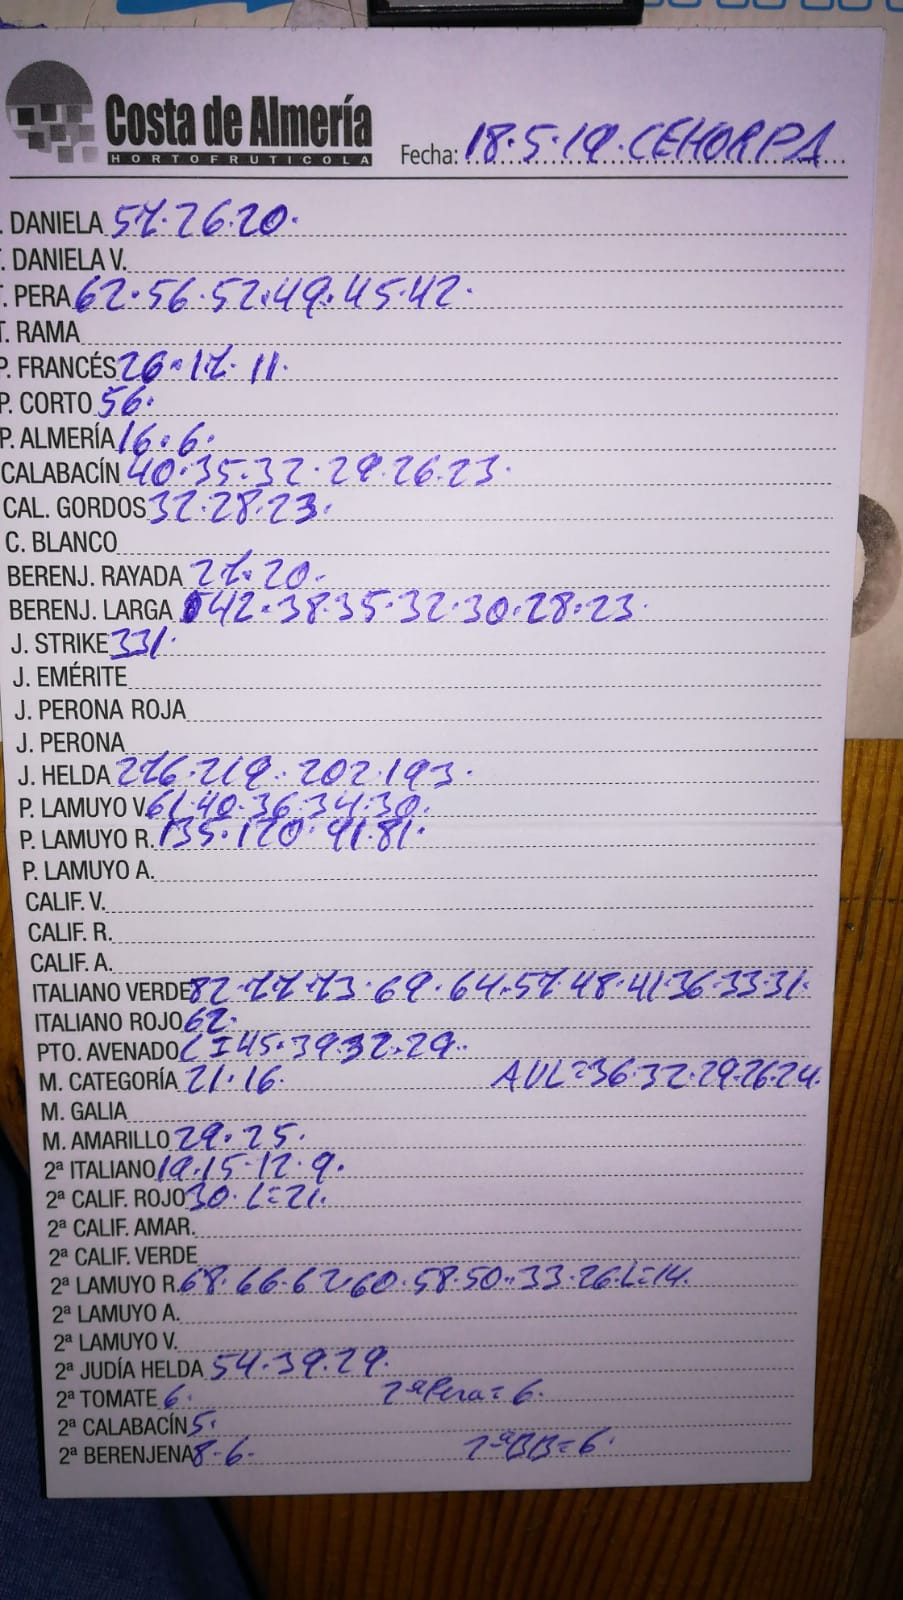 Costa de Almería
HORTOFRUTICOLA
Fecha: 18.5.19. CEHORPA
. DANIELA 57.26.20.
T. DANIELA V.
T. PERA 62.56.52.49.45.42.
T. RAMA
P. FRANCÉS 26.17.11.
P. CORTO 56.
P. ALMERÍA 16.6.
CALABACÍN 40.35.32.29.26.23.
CAL. GORDOS 32.28.23.
C. BLANCO
BERENJ. RAYADA 27.20.
BERENJ. LARGA 42.38.35.32.30.28.23.
J. STRIKE 331.
J. EMÉRITE
J. PERONA ROJA
J. PERONA
J. HELDA 276.219.202.193.
P. LAMUYO V. 61.40.36.34.30.
P. LAMUYO R. 135.120.91.81.
P. LAMUYO A.
CALIF. V.
CALIF. R.
CALIF. A.
ITALIANO VERDE 82.77.73.69.64.57.48.41.36.33.31.
ITALIANO ROJO 62.
PTO. AVENADO L=45.39.32.29.
M. CATEGORÍA 21.16. AUL=36.32.29.26.24.
M. GALIA
M. AMARILLO 29.25.
2ª ITALIANO 19.15.12.9.
2ª CALIF. ROJO 30. L=21.
2ª CALIF. AMAR.
2ª CALIF. VERDE
2ª LAMUYO R. 68.66.62.60.58.50.33.26.L=14.
2ª LAMUYO A.
2ª LAMUYO V.
2ª JUDÍA HELDA 54.39.29.
2ª TOMATE 6. 2ª Pera=6.
2ª CALABACÍN 5.
2ª BERENJENA 8.6. 2ªBB=6.